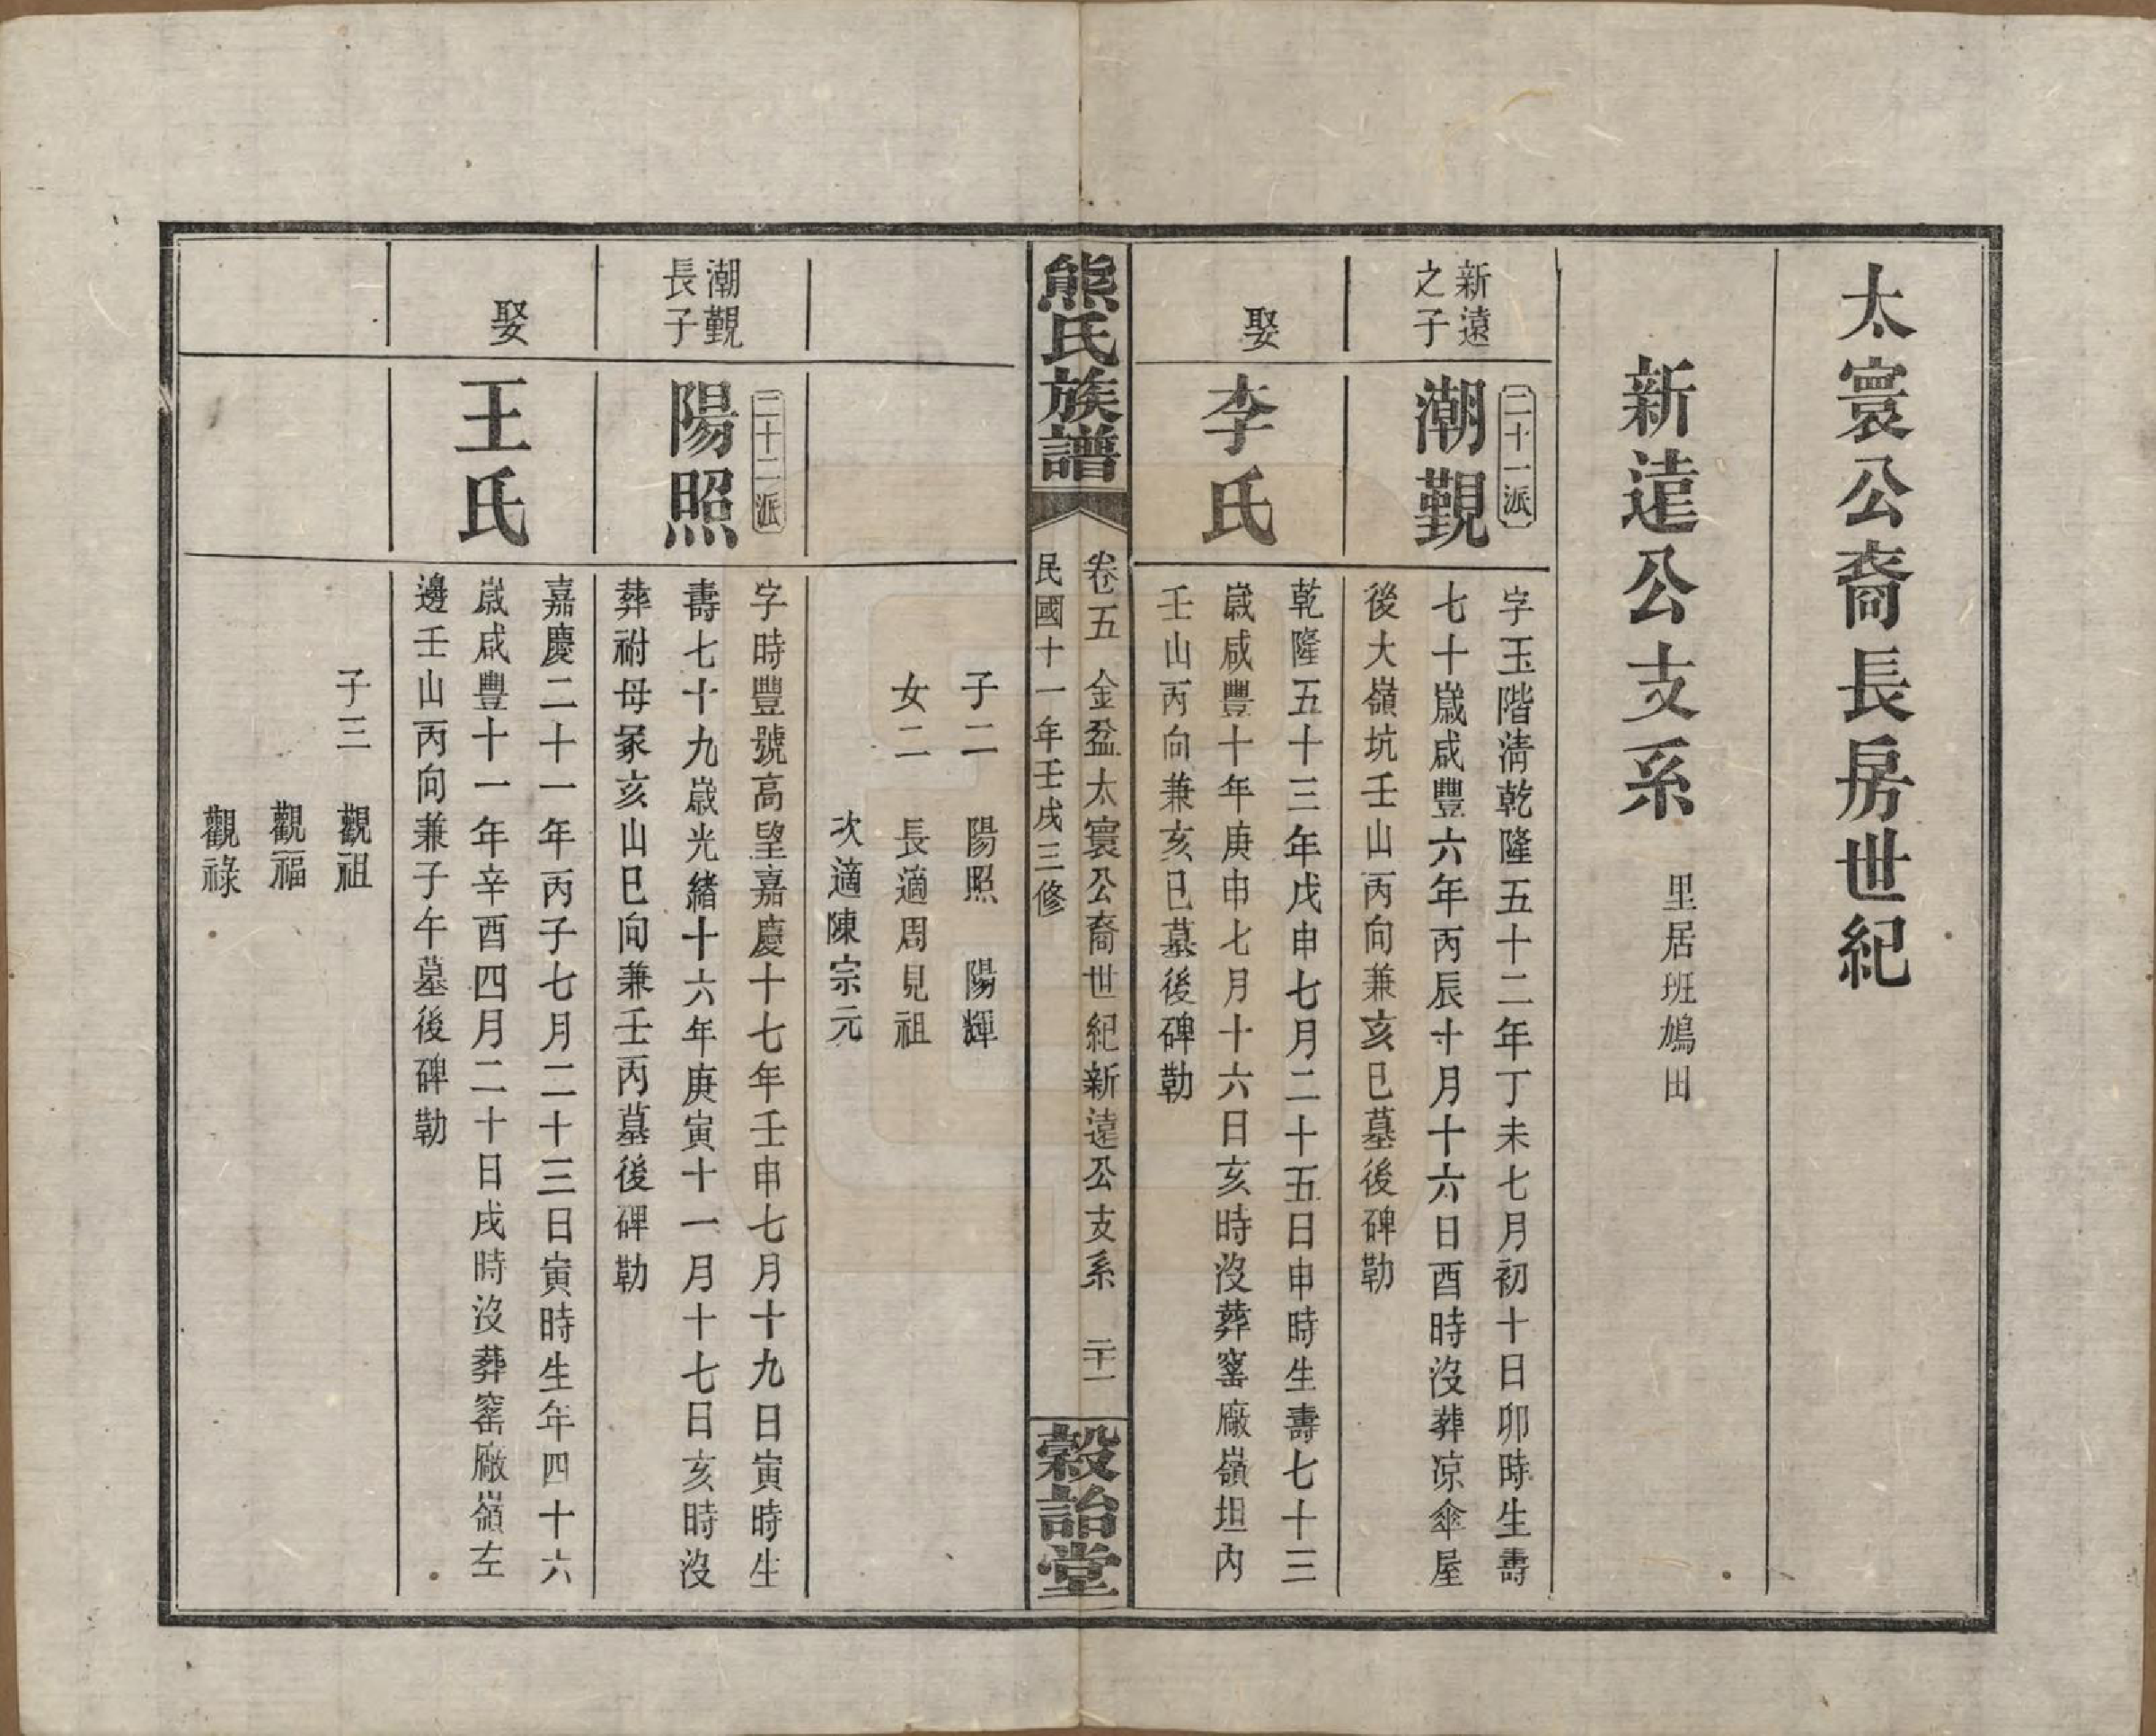 太寰公裔長房世紀
新遠公支系
里居班鳩田
新遠
之子
二十一派
潮觀
字玉階清乾隆五十二年丁未七月初十日卯時生壽
七十歲咸豐六年丙辰十月十六日酉時沒葬凉傘屋
後大嶺坑壬山丙向兼亥巳墓後碑勒
娶
李氏
乾隆五十三年戊申七月二十五日申時生壽七十三
歲咸豐十年庚申七月十六日亥時沒葬窰廠嶺坦內
壬山丙向兼亥巳墓後碑勒
熊氏族譜
卷五 金盆太寰公裔世紀新遠公支系 二十一
民國十一年壬戌三修
穀詒堂
子二 陽照 陽輝
女二 長適周見祖
次適陳宗元
潮觀
長子
二十二派
陽照
字時豐號高望嘉慶十七年壬申七月十九日寅時生
壽七十九歲光緒十六年庚寅十一月十七日亥時沒
葬祔母冢亥山巳向兼壬丙墓後碑勒
娶
王氏
嘉慶二十一年丙子七月二十三日寅時生年四十六
歲咸豐十一年辛酉四月二十日戌時沒葬窰廠嶺左
邊壬山丙向兼子午墓後碑勒
子三 觀祖
觀福
觀祿